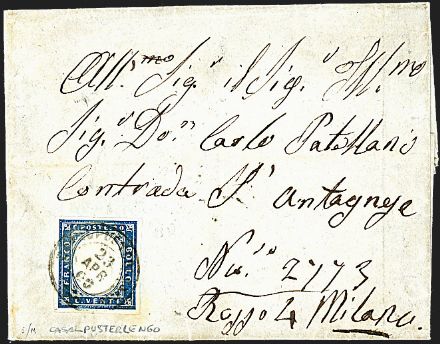 All.mo Sig.r il Sig.r Ill.mo
Sig.r Do.n Carlo Patellani
Contrada S.t Antagnese
Nu.o 2773
Rosso Milano
C. POSTE 20
FRANCO
BOLLO
C. VENTI
23
APR
60
CASALPUSTERLENGO